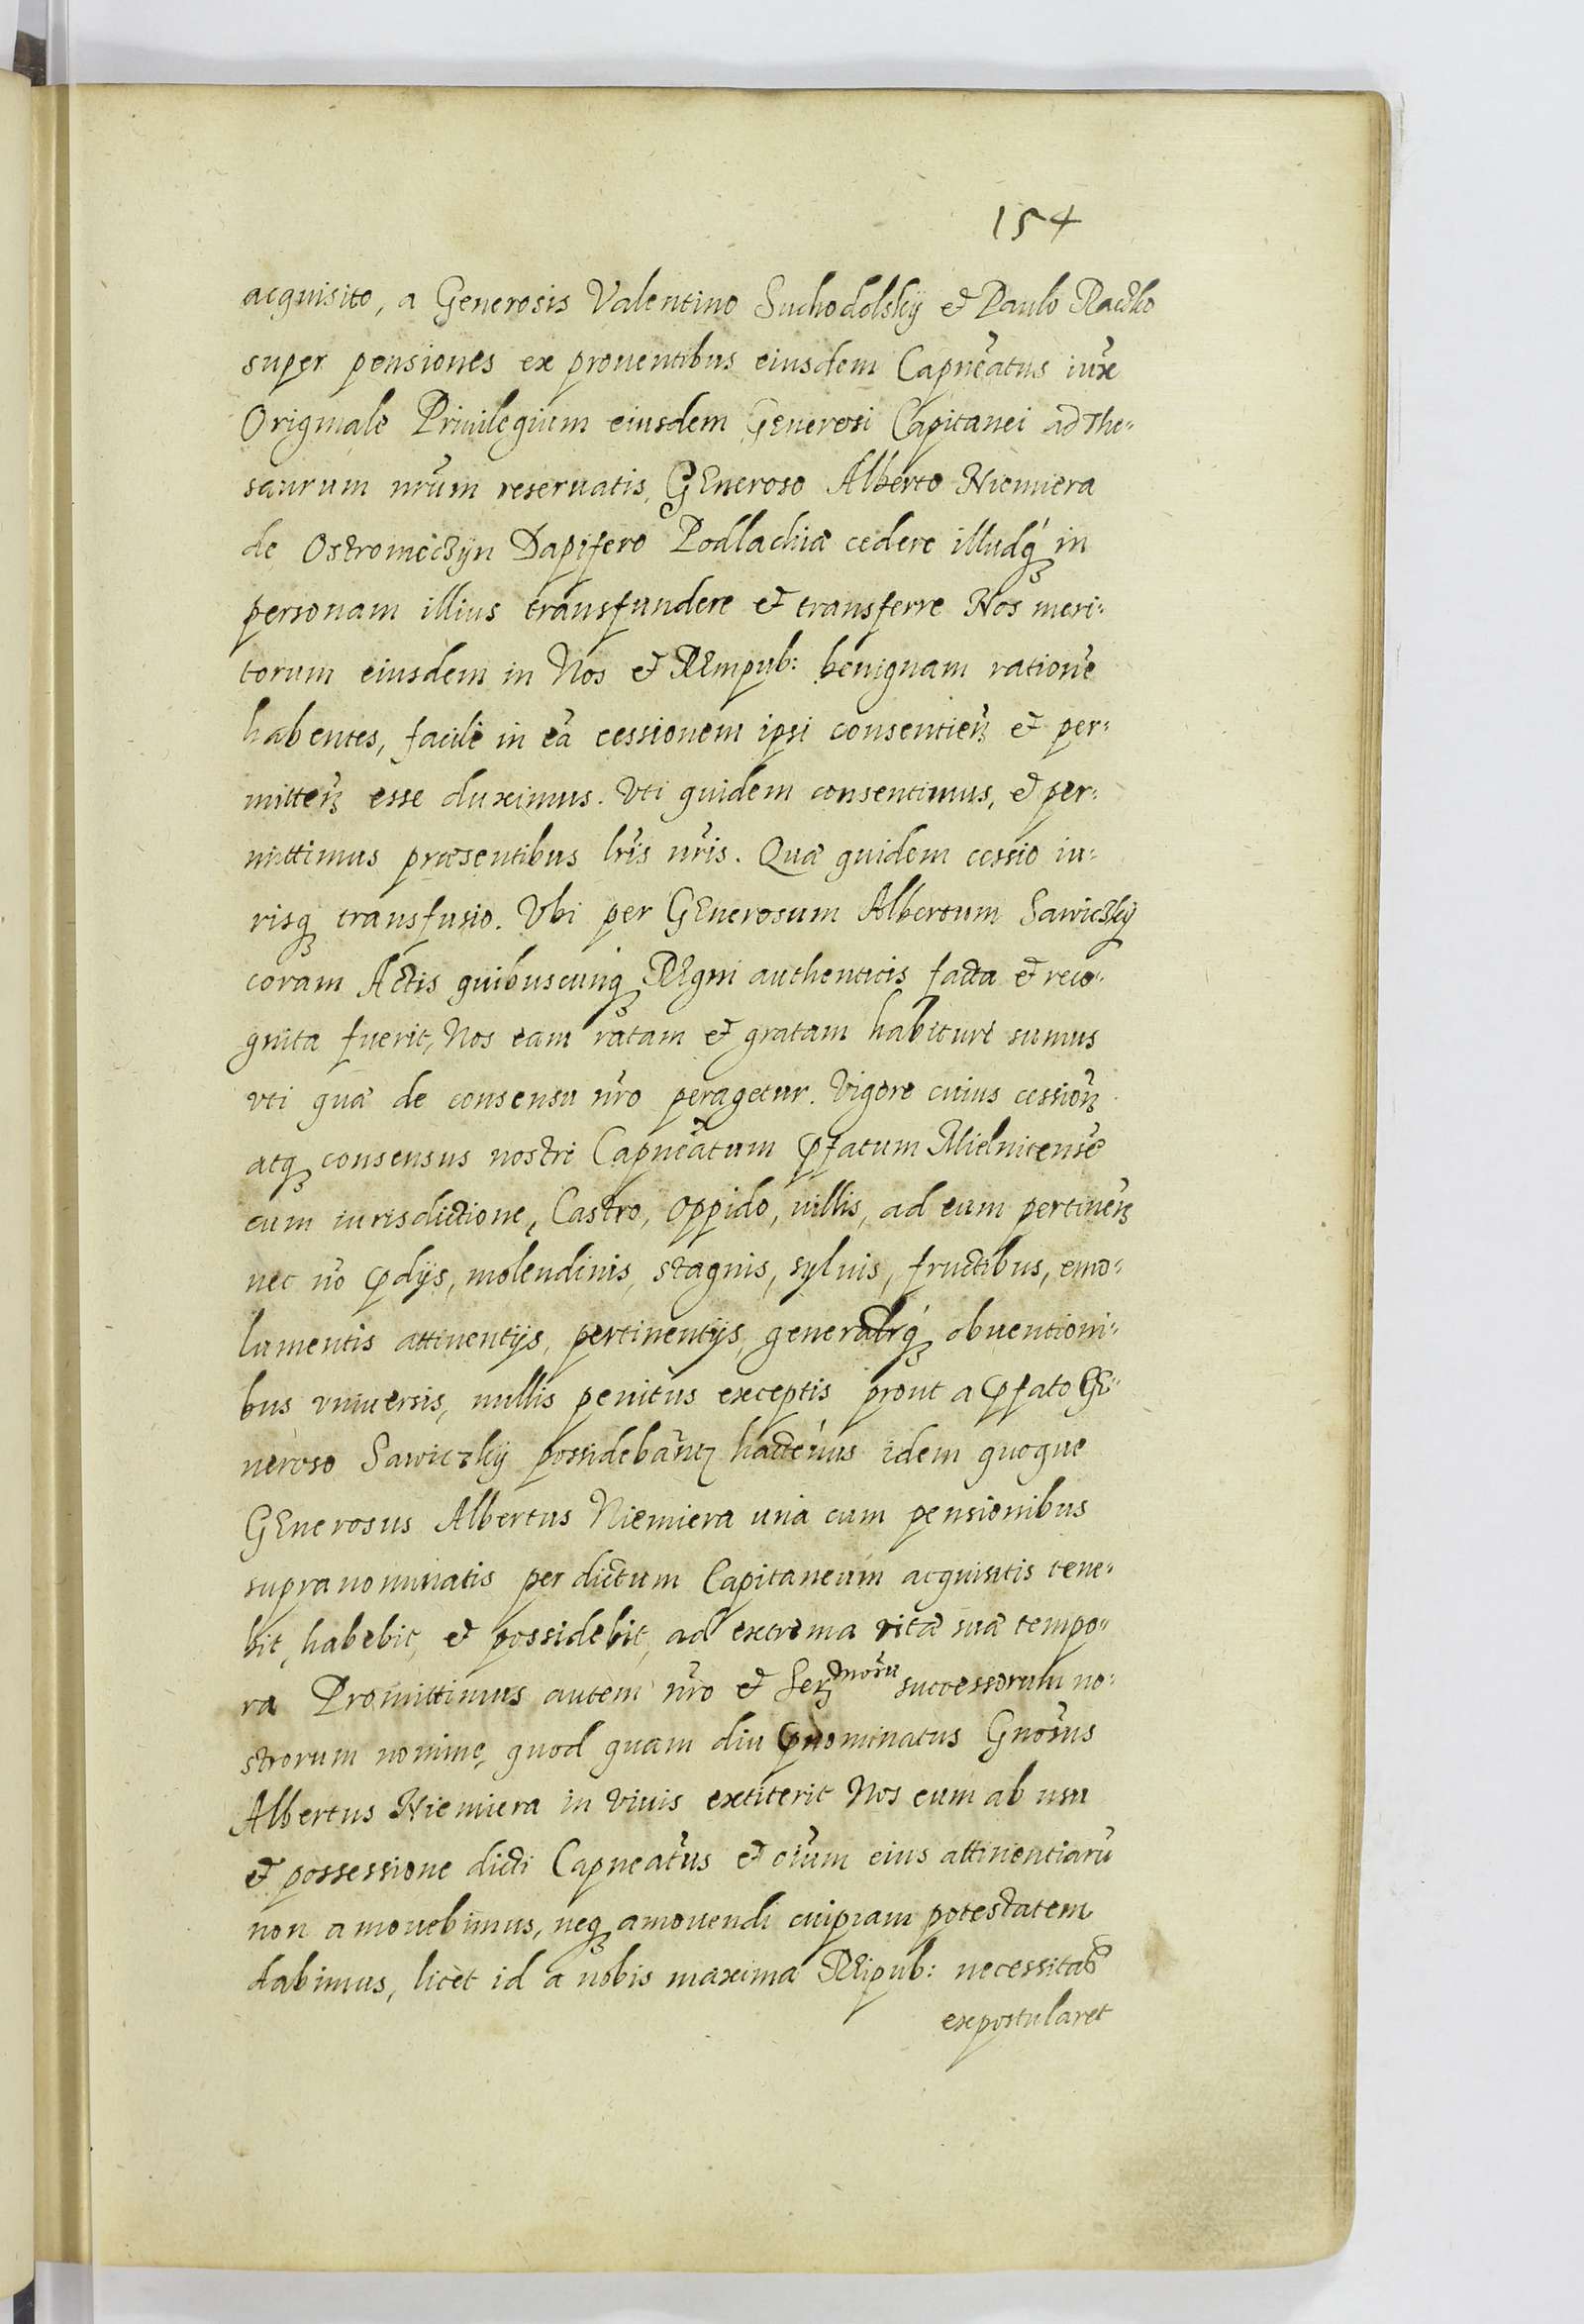 154
acquisito, a Generosis Valentino Suchodolskij et Paulo Raczko
super pensiones ex prouentibus eiusdem Capnẽatus iux̃
Originale Priuilegium eiusdem Generosi Capitanei ad The-
saurum nr̃um reseruatis, GEneroso Alberto Niemiera
de Ostromęczijn Dapifero Podlachiæ cedere illudq́ꝫ in
personam illius transfundere et transferre Nos meri-
torum eiusdem in Nos et REmpub: benignam rationẽ
habentes, facile in eã cessionem ipsi consentien̄ꝫ et per-
mitten̄ꝫ esse duximus. Vti quidem consentimus, et per-
mittimus præsentibus lr̃is nr̃is. Quæ quidem cessio iu-
risqꝫ transfusio. Vbi per GEnerosum Albertum Sawiczkij
coram Actis quibuscunqꝫ REgni authenticis facta et reco-
gnita fuerit, Nos eam ratam et gratam habituri sumus
vti quæ de consensu nr̃o peragetur. Vigore cuius cession̄ꝫ
atqꝫ consensus nostri Capnẽatum p̱fatum Mielnitensẽ
cum iurisdictione, Castro, oppido, villis, ad eum pertinen̄ꝫ
nec nõ p̱dijs, molendinis, stagnis, syluis, fructibus, emo-
lumentis attinentijs, pertinentijs, generalr̃q́ꝫ obuentioni-
bus vniuersis, nullis penitus exceptis prout a p̱fato GE-
neroso Sawiczkij possidebãntꝫ hactenus idem quoque
GEnerosus Albertus Niemiera unà cum pensionibus
supranominatis per dictum Capitaneum acquisitis tene-
bit, habebit, et possidebit, ad extrema vitæ suæ tempo-
ra Promittimus autem nr̃o et Serꝫmorũ successorum no-
strorum nomine, quod quam diu p̱nominatus Gnõsus
Albertus Niemiera in viuis extiterit Nos eum ab usu
et possessione dicti Capneatũs et oĩum eius attinentiarũ
non amouebimus, neqꝫ amouendi cuipiam potestatem
dabimus, licèt id a nobis maxima REipub: necessitas
expostularet